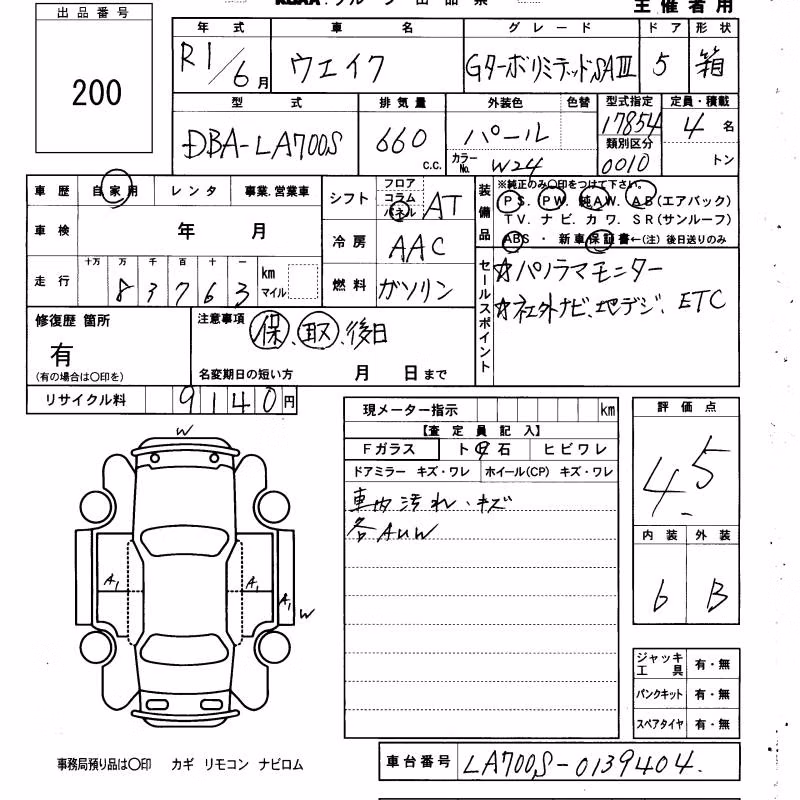 主催者用
出品番号
200
年式 車名 グレード ドア 形状
R1/6月 ウエイク GターボリミテッドSAⅢ 5 箱
型式 排気量 外装色 色替 型式指定 定員・積載
DBA-LA700S 660 c.c. パール 17854 4名
カラーNo. W24 類別区分 0010 トン
車歴 自家用 レンタ 事業.営業車
車検 年 月
走行 十万 万 千 百 十 一
83763 km マイル
シフト フロア コラム パネル AT
冷房 AAC
燃料 ガソリン
装備品 ※純正のみ〇印をつけて下さい。
PS. PW. 純AW. AB(エアバック)
TV. ナビ. カワ. SR(サンルーフ)
ABS ・ 新車保証書←(注) 後日送りのみ
セールスポイント
☆パノラマモニター
☆社外ナビ、地デジ、ETC
修復歴 箇所
有
(有の場合は〇印を)
注意事項 保、取、後日
名変期日の短い方 月 日まで
リサイクル料 9140円
現メーター指示 km
【査定員記入】
Fガラス ト 石 ヒビワレ
ドアミラー キズ・ワレ ホイール(CP) キズ・ワレ
車内汚れ・キズ
各AUW
評価点
4.5
内装 外装
6 B
W
A1 A1 A1 W
ジャッキ工具 有・無
パンクキット 有・無
スペアタイヤ 有・無
事務局預り品は〇印 カギ リモコン ナビロム
車台番号 LA700S-0139404.